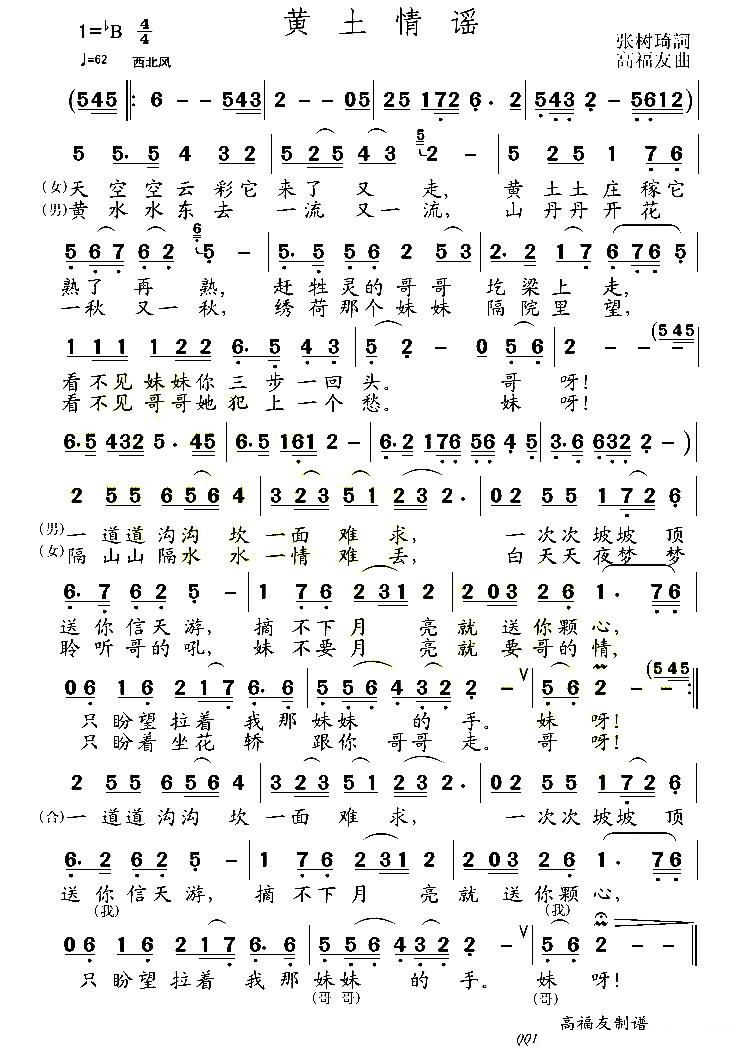 黄土情谣
1=♭B 4/4
♩=62 西北风
张树琦詞
高福友曲
(545 ‖: 6 - - 543 | 2 - - 05 | 25 172 6. 2 | 543 2 - 5612) |
5 5. 5 4 32 | 5 25 43 5 2 - | 5 25 1 76 |
(女)天空空云彩它来了又走, 黄土土庄稼它
(男)黄水水东去一流又一流, 山丹丹开花
5 67 62 6 5 - | 5. 5 56 2 53 | 2. 2 17 6765 |
熟了再熟, 赶牲灵的哥哥圪梁上走,
一秋又一秋, 绣荷那个妹妹隔院里望,
1 11 122 6. 5 43 | 5 2 - 0 56 | 2 - - (545
看不见妹妹你三步一回头。 哥呀!
看不见哥哥她犯上一个愁。 妹呀!
6.5 432 5. 45 | 6.5 161 2 - | 6.2 176 56 45 | 3.6 632 2 -) |
2 55 6564 | 323 51 232. | 02 55 172 6 |
(男)一道道沟沟坎一面难求, 一次次坡坡顶
(女)隔山山隔水水一情难丢, 白天天夜梦梦
6. 7 62 5 - | 1 76 2312 | 203 26 1. 76 |
送你信天游, 摘不下月亮就送你颗心,
聆听哥的吼, 妹不要月亮就要哥的情,
06 16 217 6. 6 | 5 56 4322 - ∨ | 56 2 - (545 :‖
只盼望拉着我那妹妹的手。 妹呀!
只盼着坐花轿跟你哥哥走。 哥呀!
2 55 6564 | 323 51 232. | 02 55 172 6 |
(合)一道道沟沟坎一面难求, 一次次坡坡顶
6. 2 62 5 - | 1 76 2312 | 203 26 1. 76 |
送你信天游, 摘不下月亮就送你颗心,
(我) (我)
06 16 217 6. 6 | 5 56 4322 - ∨ | 56 2 - - ‖
只盼望拉着我那妹妹的手。 妹呀!
(哥哥) (哥)
高福友制谱
QQ1